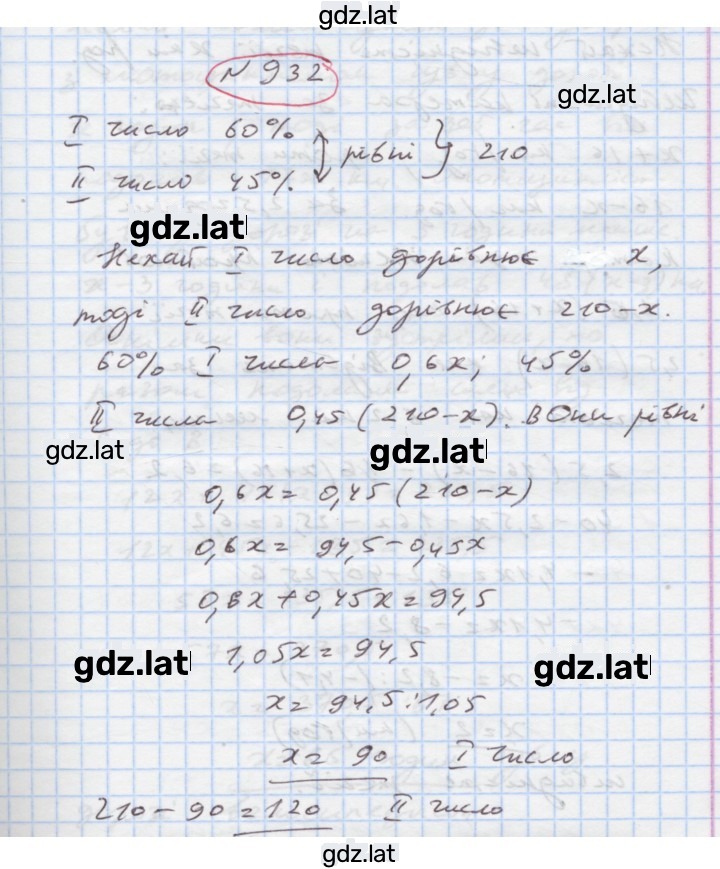 gdz.lat
N 932
gdz.lat
I число 60%
рівні 210
II число 45%.
gdz.lat
Нехай I число дорівнює x,
тоді II число дорівнює 210-x.
60% I числа 0,6x; 45%
II числа 0,45(210-x). Вони рівні
gdz.lat gdz.lat
0,6x = 0,45(210-x)
0,6x = 94,5-0,45x
0,6x+0,45x=94,5
gdz.lat 1,05x=94,5 gdz.lat
x= 94,5:1,05
x= 90 I число
210-90=120 II число
gdz.lat